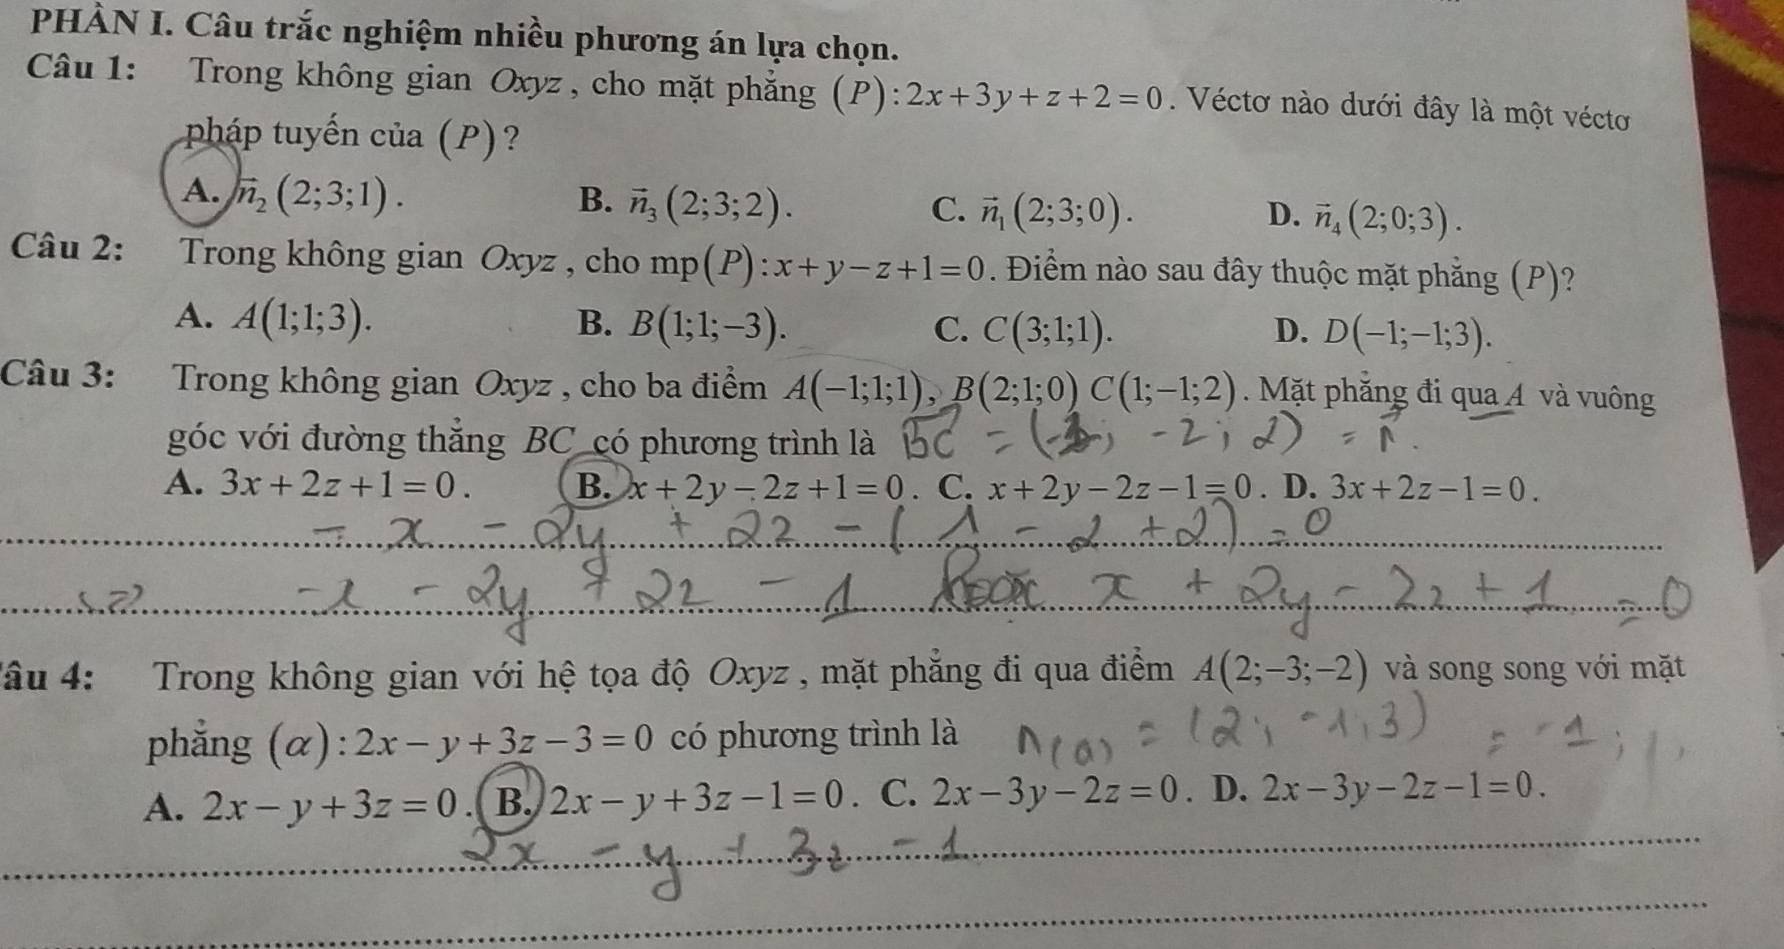 PHẦN I. Câu trắc nghiệm nhiều phương án lựa chọn.
Câu 1: Trong không gian Oxyz, cho mặt phẳng (P):2x+3y+z+2=0. Véctơ nào dưới đây là một véctơ
pháp tuyến của (P)?
A. n⃗₂(2;3;1). B. n⃗₃(2;3;2). C. n⃗₁(2;3;0). D. n⃗₄(2;0;3).
Câu 2: Trong không gian Oxyz, cho mp(P):x+y−z+1=0. Điểm nào sau đây thuộc mặt phẳng (P)?
A. A(1;1;3). B. B(1;1;−3). C. C(3;1;1). D. D(−1;−1;3).
Câu 3: Trong không gian Oxyz, cho ba điểm A(−1;1;1), B(2;1;0) C(1;−1;2). Mặt phẳng đi qua A và vuông
góc với đường thẳng BC có phương trình là BC = ( ; -2; 2) = n.
A. 3x+2z+1=0. B. x+2y−2z+1=0. C. x+2y−2z−1=0. D. 3x+2z−1=0.
- x - 2y + 2z - (1 - 2 + 2) = 0
<=> -x - 2y + 2z - 1 hoặc x + 2y - 2z + 1 = 0
âu 4: Trong không gian với hệ tọa độ Oxyz, mặt phẳng đi qua điểm A(2;−3;−2) và song song với mặt
phẳng (α):2x−y+3z−3=0 có phương trình là n(a) = (2; -1; 3) = -1;
A. 2x−y+3z=0. B. 2x−y+3z−1=0. C. 2x−3y−2z=0. D. 2x−3y−2z−1=0.
2x - y + 3z - 1